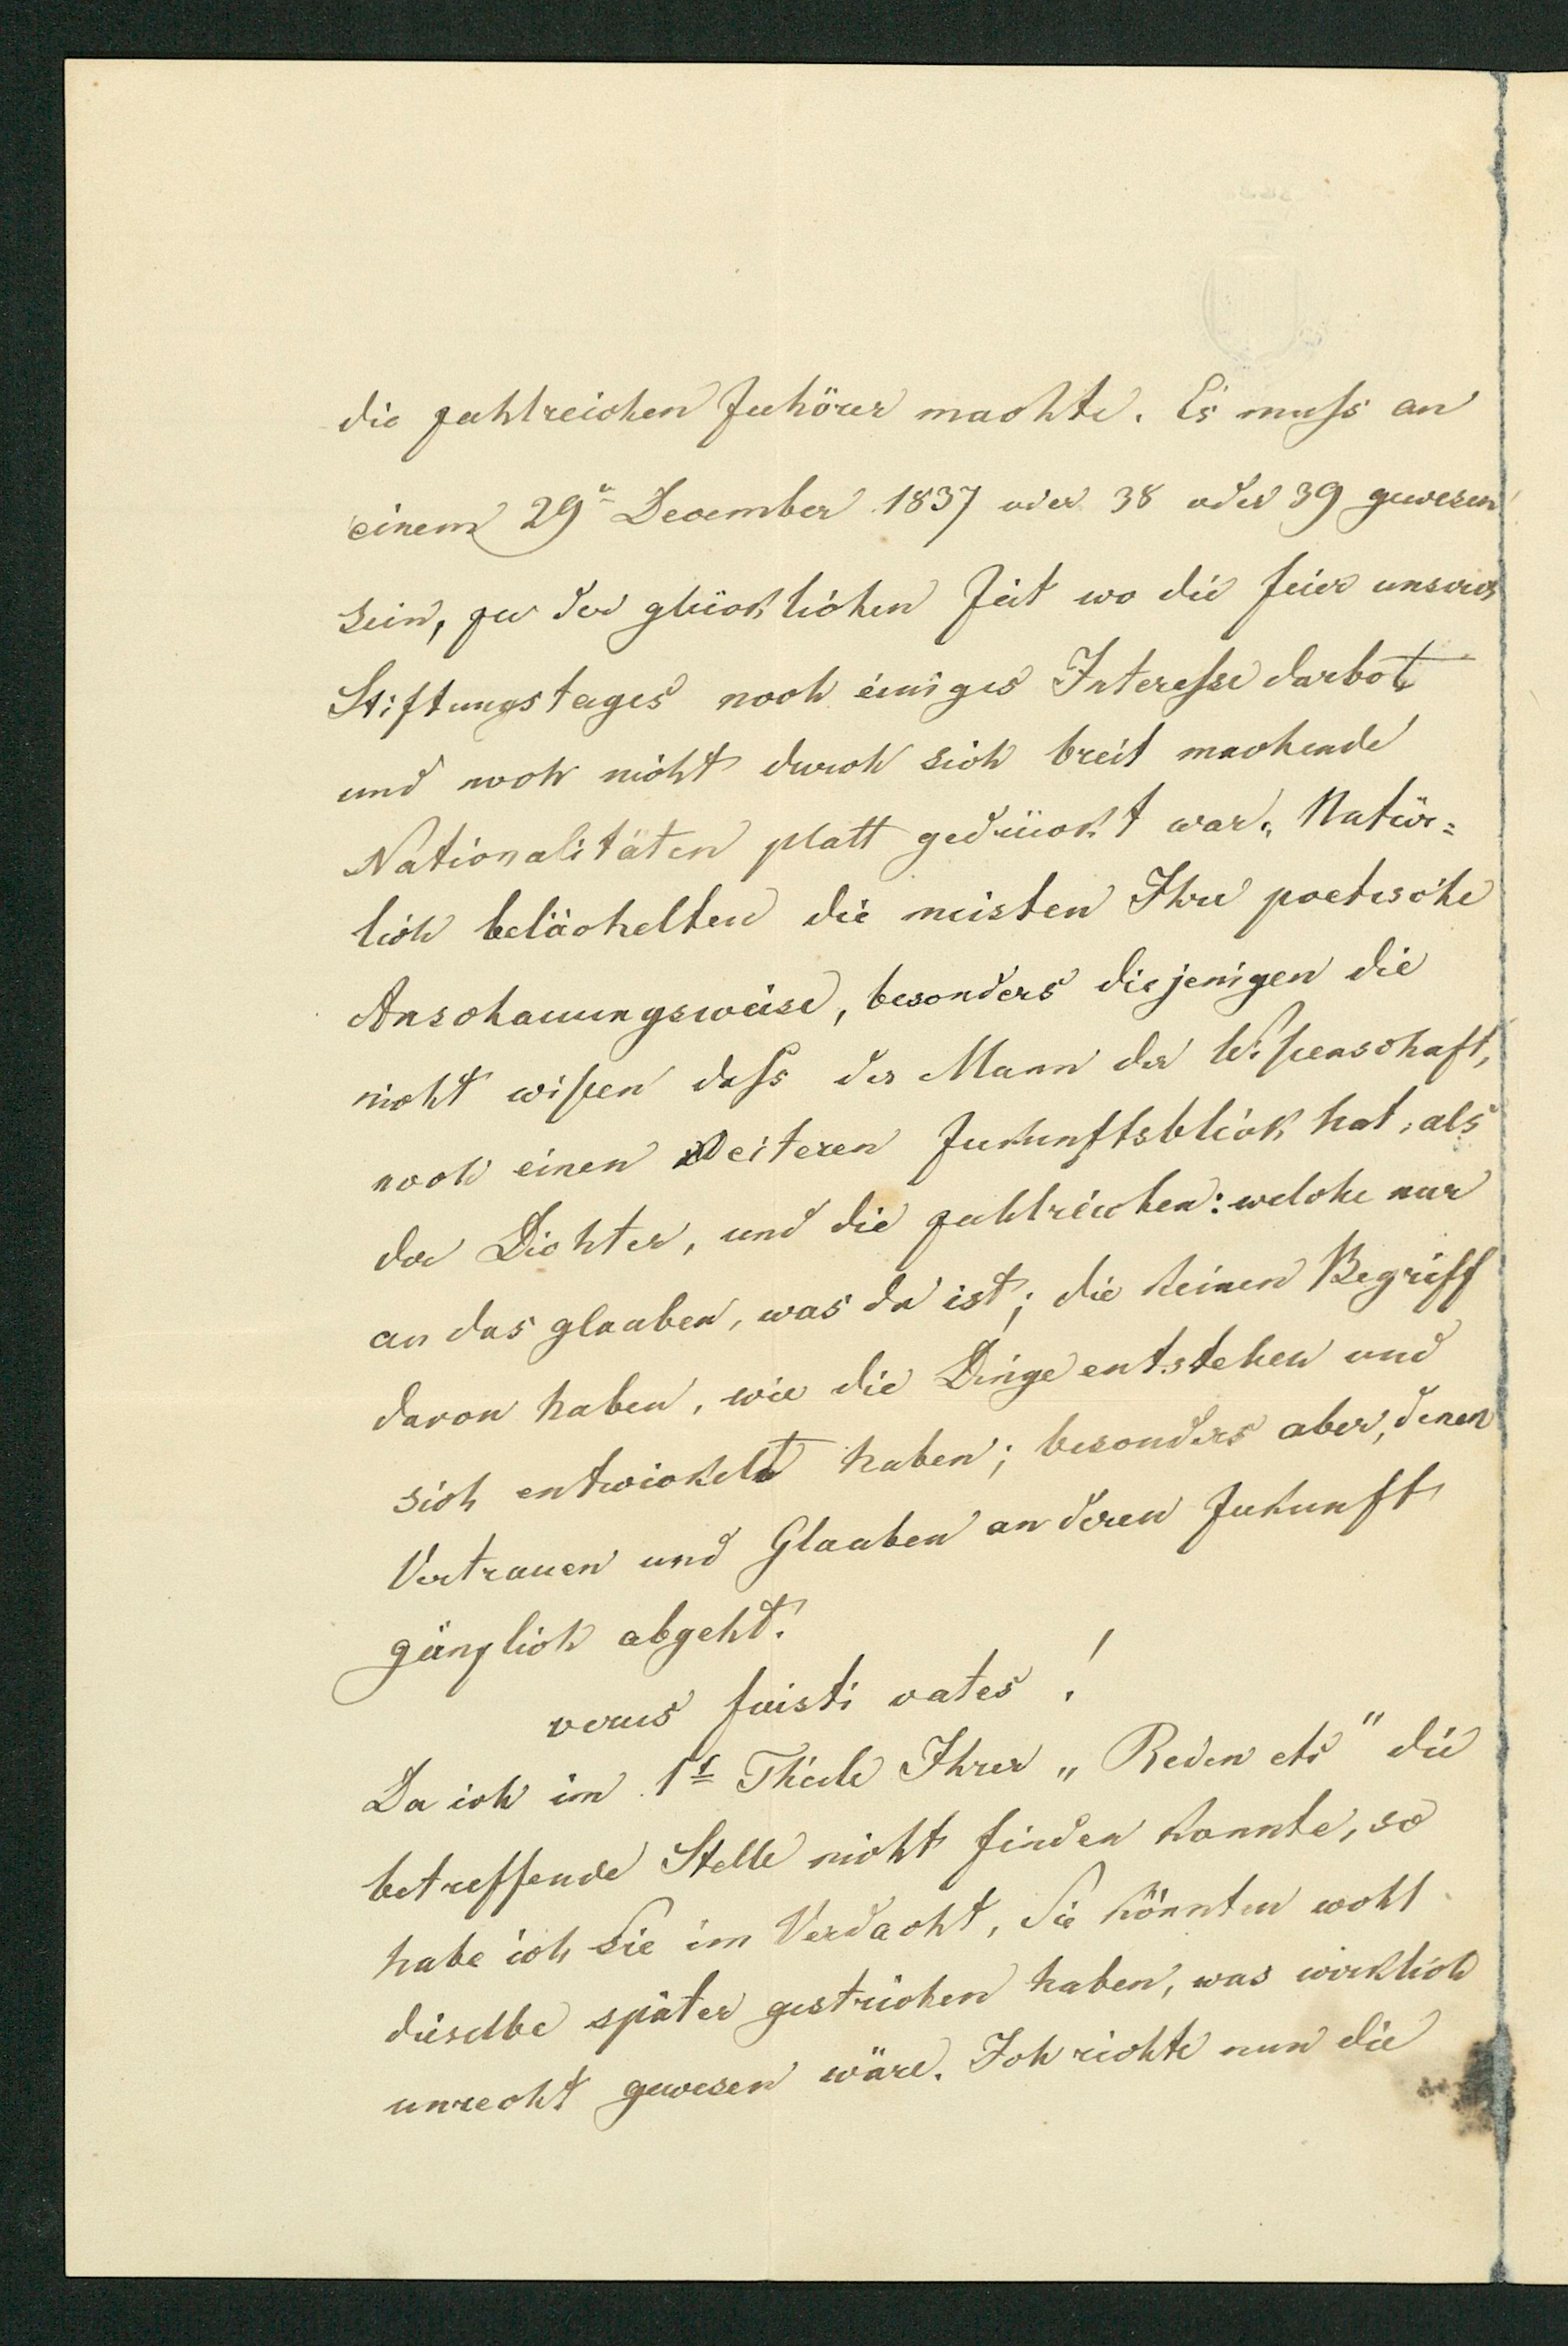 die zahlreichen Zuhörer machte. Es muſs an
einem 29n December 1837 oder 38 oder 39 gewesen
sein, zu der glücklichen Zeit wo die Feier unseres
Stiftungstages noch einiges Intereſse darbot
und noch nicht durch sich breit machende
Nationalitäten platt gedrückt war. Natür=
lich belächelten die meisten Ihre poetische
Anschauungsweise, besonders diejenigen die
nicht wiſsen daſs der Mann der Wiſsenschaft,
noch einen weiteren Zukunftsblick hat, als
der Dichter, und die zahlreichen: welche nur
an das glauben, was da ist; die keinen Begriff
davon haben, wie die Dinge entstehen und
sich entwickelt haben; besonders aber, denen
Vertrauen und Glauben an deren Zukunft
gänzlich abgeht.
verus fuisti vates!
Da ich im 1t Theile Ihrer „Reden etc" die
betreffende Stelle nicht finden konnte, so
habe ich Sie im Verdacht, Sie könnten wohl
dieselbe später gestrichen haben, was wirklich
unrecht gewesen wäre. Ich richte nun die